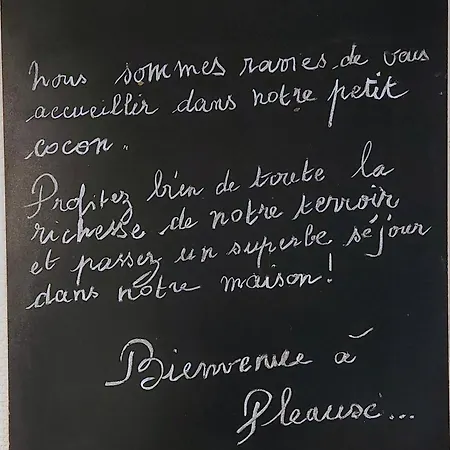 Nous sommes ravies de vous
accueillir dans notre petit
cocon.
Profitez bien de toute la
richesse de notre terroir
et passez un superbe séjour
dans notre maison!
Bienvenue à
...